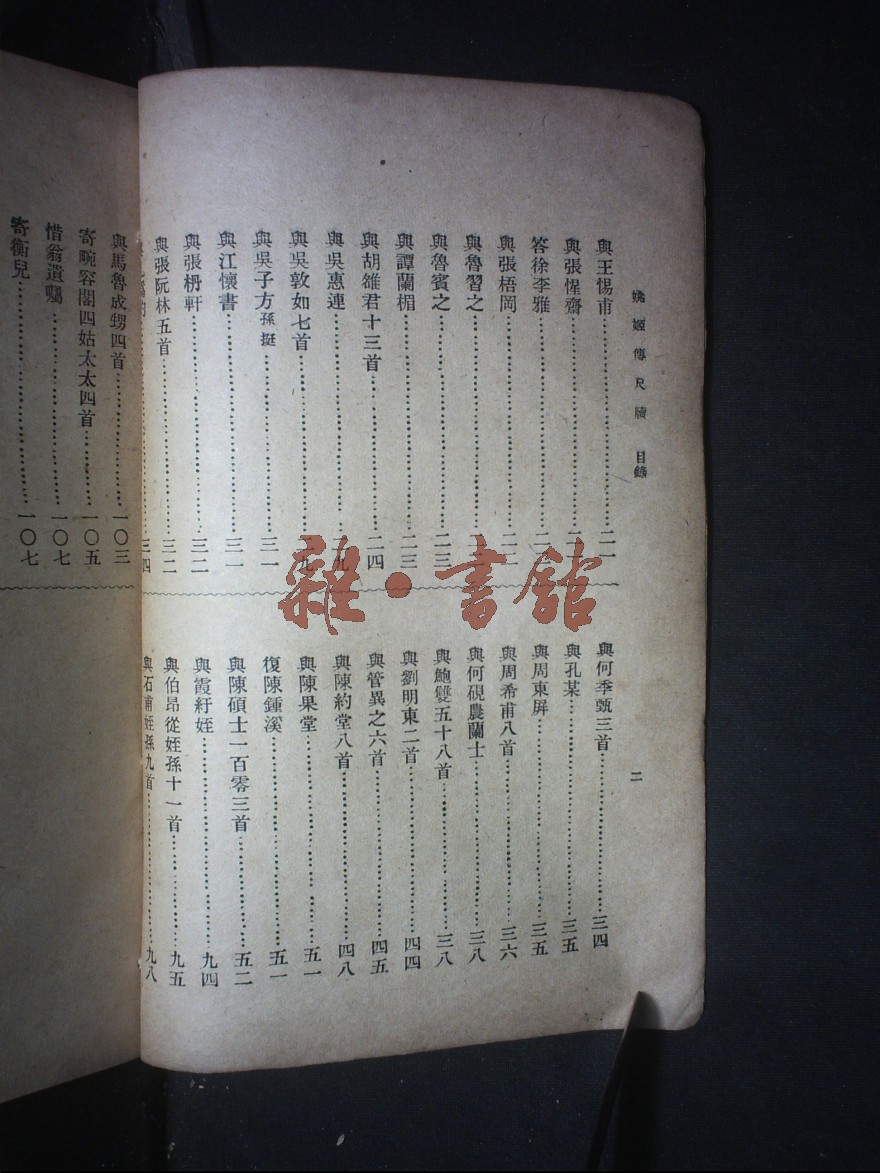 姚姬傳尺牘 目錄
二
與王惕甫…………二一
與張惺齋…………二
答徐季雅…………二
與張梧岡…………二
與魯習之…………二
與魯賓之…………二三
與譚蘭楣…………二三
與胡雒君十三首…………二四
與吳惠連…………九
與吳敦如七首…………二九
與吳子方孫挺…………三一
與江懷書…………三一
與張枬軒…………三二
與張阮林五首…………三二
三四
與何季甄三首…………三四
與孔某…………三五
與周東屏…………三五
與周希甫八首…………三六
與何硯農蘭士…………三八
與鮑雙五十八首…………三八
與劉明東二首…………四四
與管異之六首…………四五
與陳約堂八首…………四八
與陳果堂…………五一
復陳鍾溪…………五一
與陳碩士一百零三首…………五二
與霞紆姪…………九四
與伯昂從姪孫十一首…………九五
與石甫姪孫九首…………九八
與馬魯成甥四首…………一〇三
寄畹容閣四姑太太四首…………一〇五
惜翁遺囑…………一〇七
寄衡兒…………一〇七
雜·書館